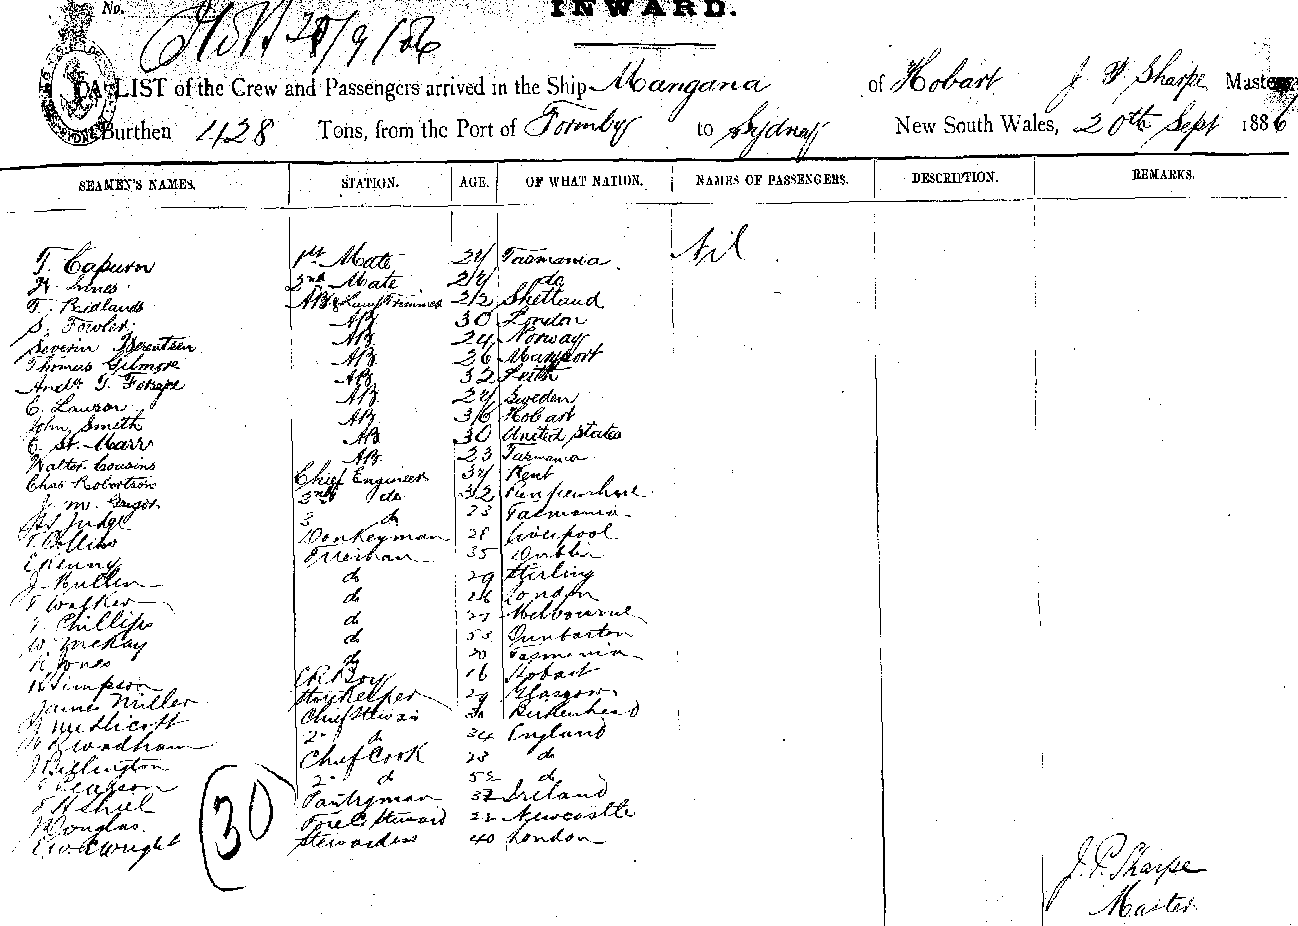 No. INWARD.
20/9/86
A LIST of the Crew and Passengers arrived in the Ship Mangana of Hobart J P Sharpe Master
Burthen 428 Tons, from the Port of Formby to Sydney New South Wales, 20th Sept 1886
SEAMEN'S NAMES. STATION. AGE. OF WHAT NATION. NAMES OF PASSENGERS. DESCRIPTION. REMARKS.
T. Capurn 1st Mate Tasmania Nil
H. Lines 2nd Mate do
T. Ridlands AB & Lamp Trimmer 22 Shetland
S. Fowler AB 30 London
Severin Berentsen AB 24 Norway
Thomas Gilmore AB 26 Maryport
Andw T. AB 32 Leith
C. Lawson AB Sweden
John Smith AB 36 Hobart
C. St. Marr AB 30 United States
Walter Cousins AB 23 Tasmania
Chas Robertson Chief Engineer Kent
J. M. Gregor 2nd do 32
Judge 3 do 23 Tasmania
T Collins Donkeyman 28 Liverpool
E Kenny Fireman 35 Dublin
J. Bullen do 29 Stirling
T Walker do 26 London
Phillips do 27 Melbourne
W. McKay do 53 Dunbarton
R Jones do 20 Tasmania
H Simpson Boy 16 Hobart
James Miller Storekeeper 29 Glasgow
Medlicott Chief Stewar 30 Birkenhead
Woodham 2nd do 34 England
J Billington Chief Cook 23 do
Pearson 2 do 52 do
T H Shiel Pantryman 32 Ireland
Douglas Fore C Steward 22 Newcastle
E Walwright Stewardess 40 London
30
J. P. Sharpe
Master